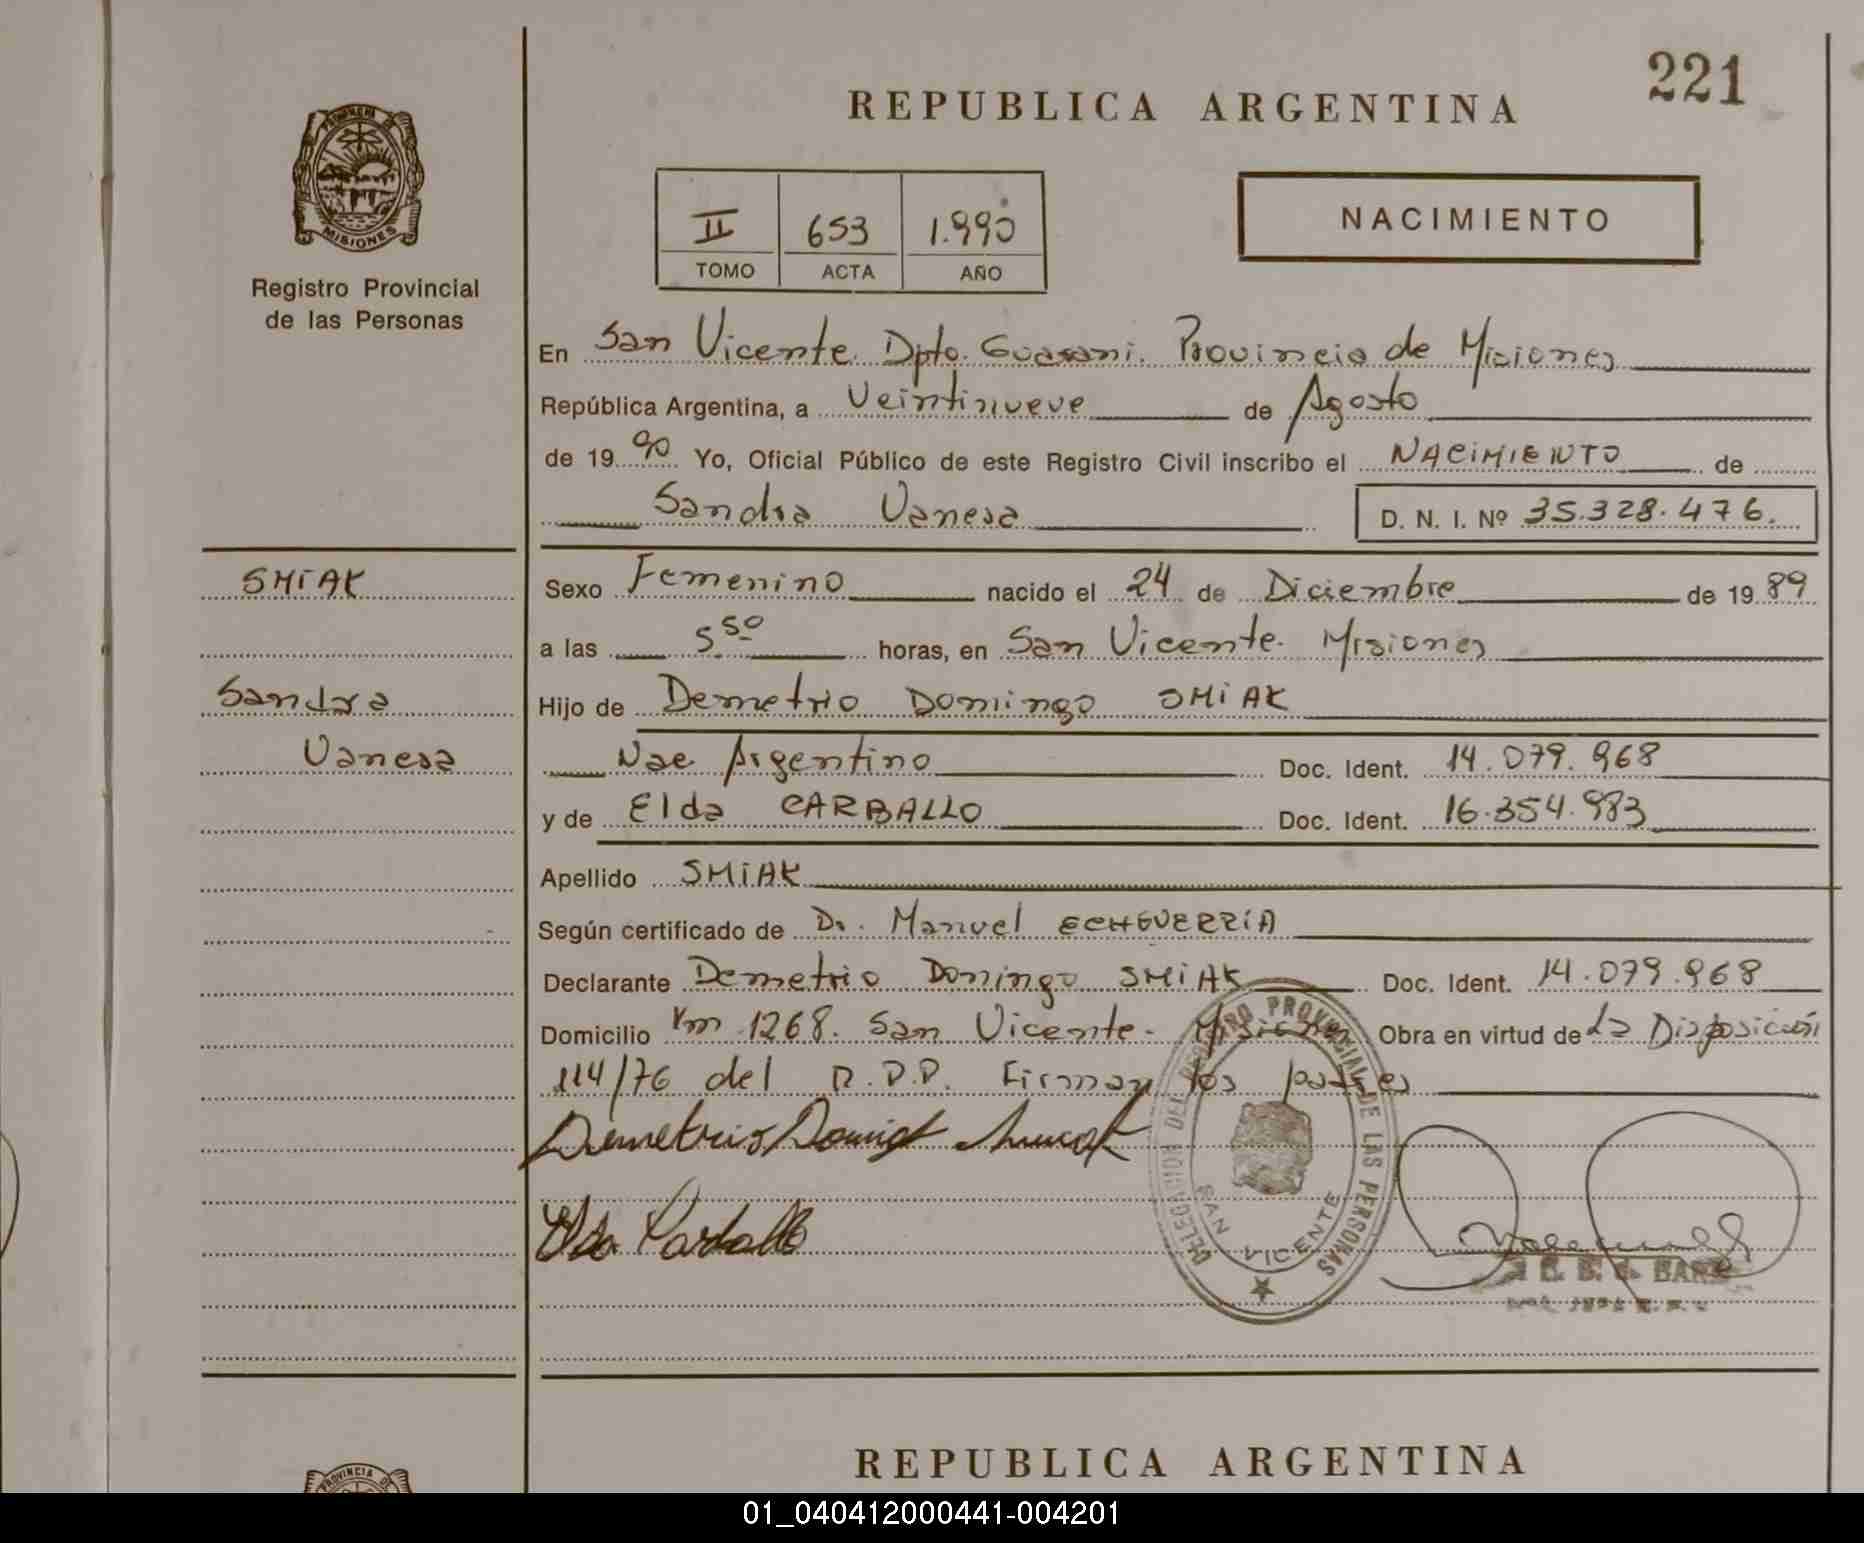 221
REPUBLICA ARGENTINA
PROVINCIA DE
MISIONES
Registro Provincial
de las Personas
II 653 1.990
TOMO ACTA AÑO
NACIMIENTO
En San Vicente. Dpto. Guarani. Provincia de Misiones
República Argentina, a Veintinueve de Agosto
de 1990 Yo, Oficial Público de este Registro Civil inscribo el NACIMIENTO de
Sandra Vanesa D. N. I. Nº 35.328.476.
SMIAK
Sandra
Vanesa
Sexo Femenino nacido el 24 de Diciembre de 1989
a las 5 50 horas, en San Vicente. Misiones
Hijo de Demetrio Domingo SMIAK
Nac Argentino Doc. Ident. 14.079.968
y de Elda CARBALLO Doc. Ident. 16.354.983
Apellido SMIAK
Según certificado de Dr. Manuel ECHEVERRIA
Declarante Demetrio Domingo SMIAK Doc. Ident. 14.079.968
Domicilio Km 1268. San Vicente. Misiones Obra en virtud de La Disposición
114/76 del R.P.P. Firman los padres
Elda Carballo
DELEGACION DEL REGISTRO PROVINCIAL DE LAS PERSONAS
SAN VICENTE
REPUBLICA ARGENTINA
PROVINCIA DE
01_040412000441-004201